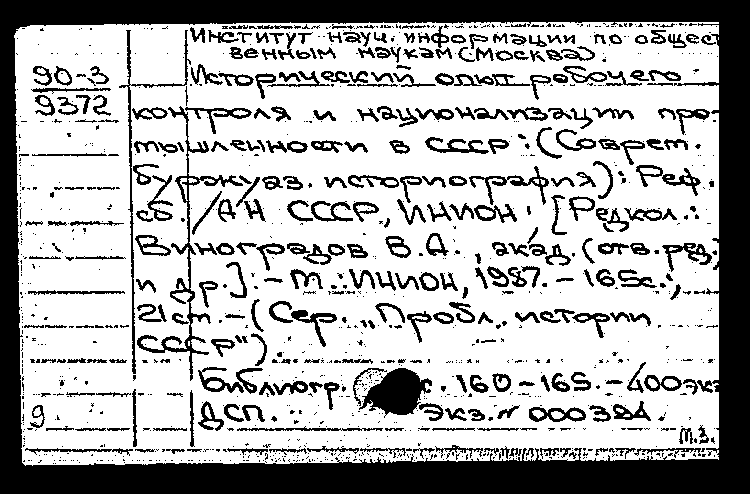 Институт науч. информации по общест
венным наукам (Москва).
90-3
9372
Исторический опыт рабочего
контроля и национализации про-
мышленности в СССР : (Соврем.
буржуаз. историография) : Реф.
сб. / АН СССР, ИНИОН ; [Редкол.:
Виноградов В.А., акад. (отв. ред.)
и др.]. - М. : ИНИОН, 1987. - 165с.;
21 см. - (Сер. "Пробл. истории
СССР")
Библиогр. с. 160-165. - 400 экз
9
ДСП. Экз. N 000384.
М.З.